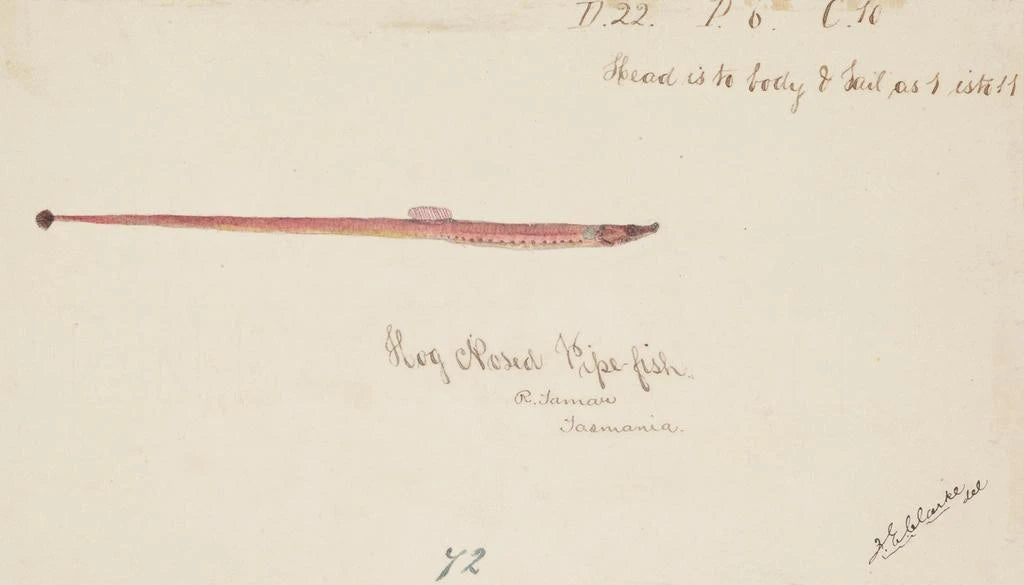 D. 22. P. 6. C. 10
Head is to body & tail as 1 is to 11
Hog Nosed Pipe-fish.
R. Tamar
Tasmania.
F. E. Clarke del
72